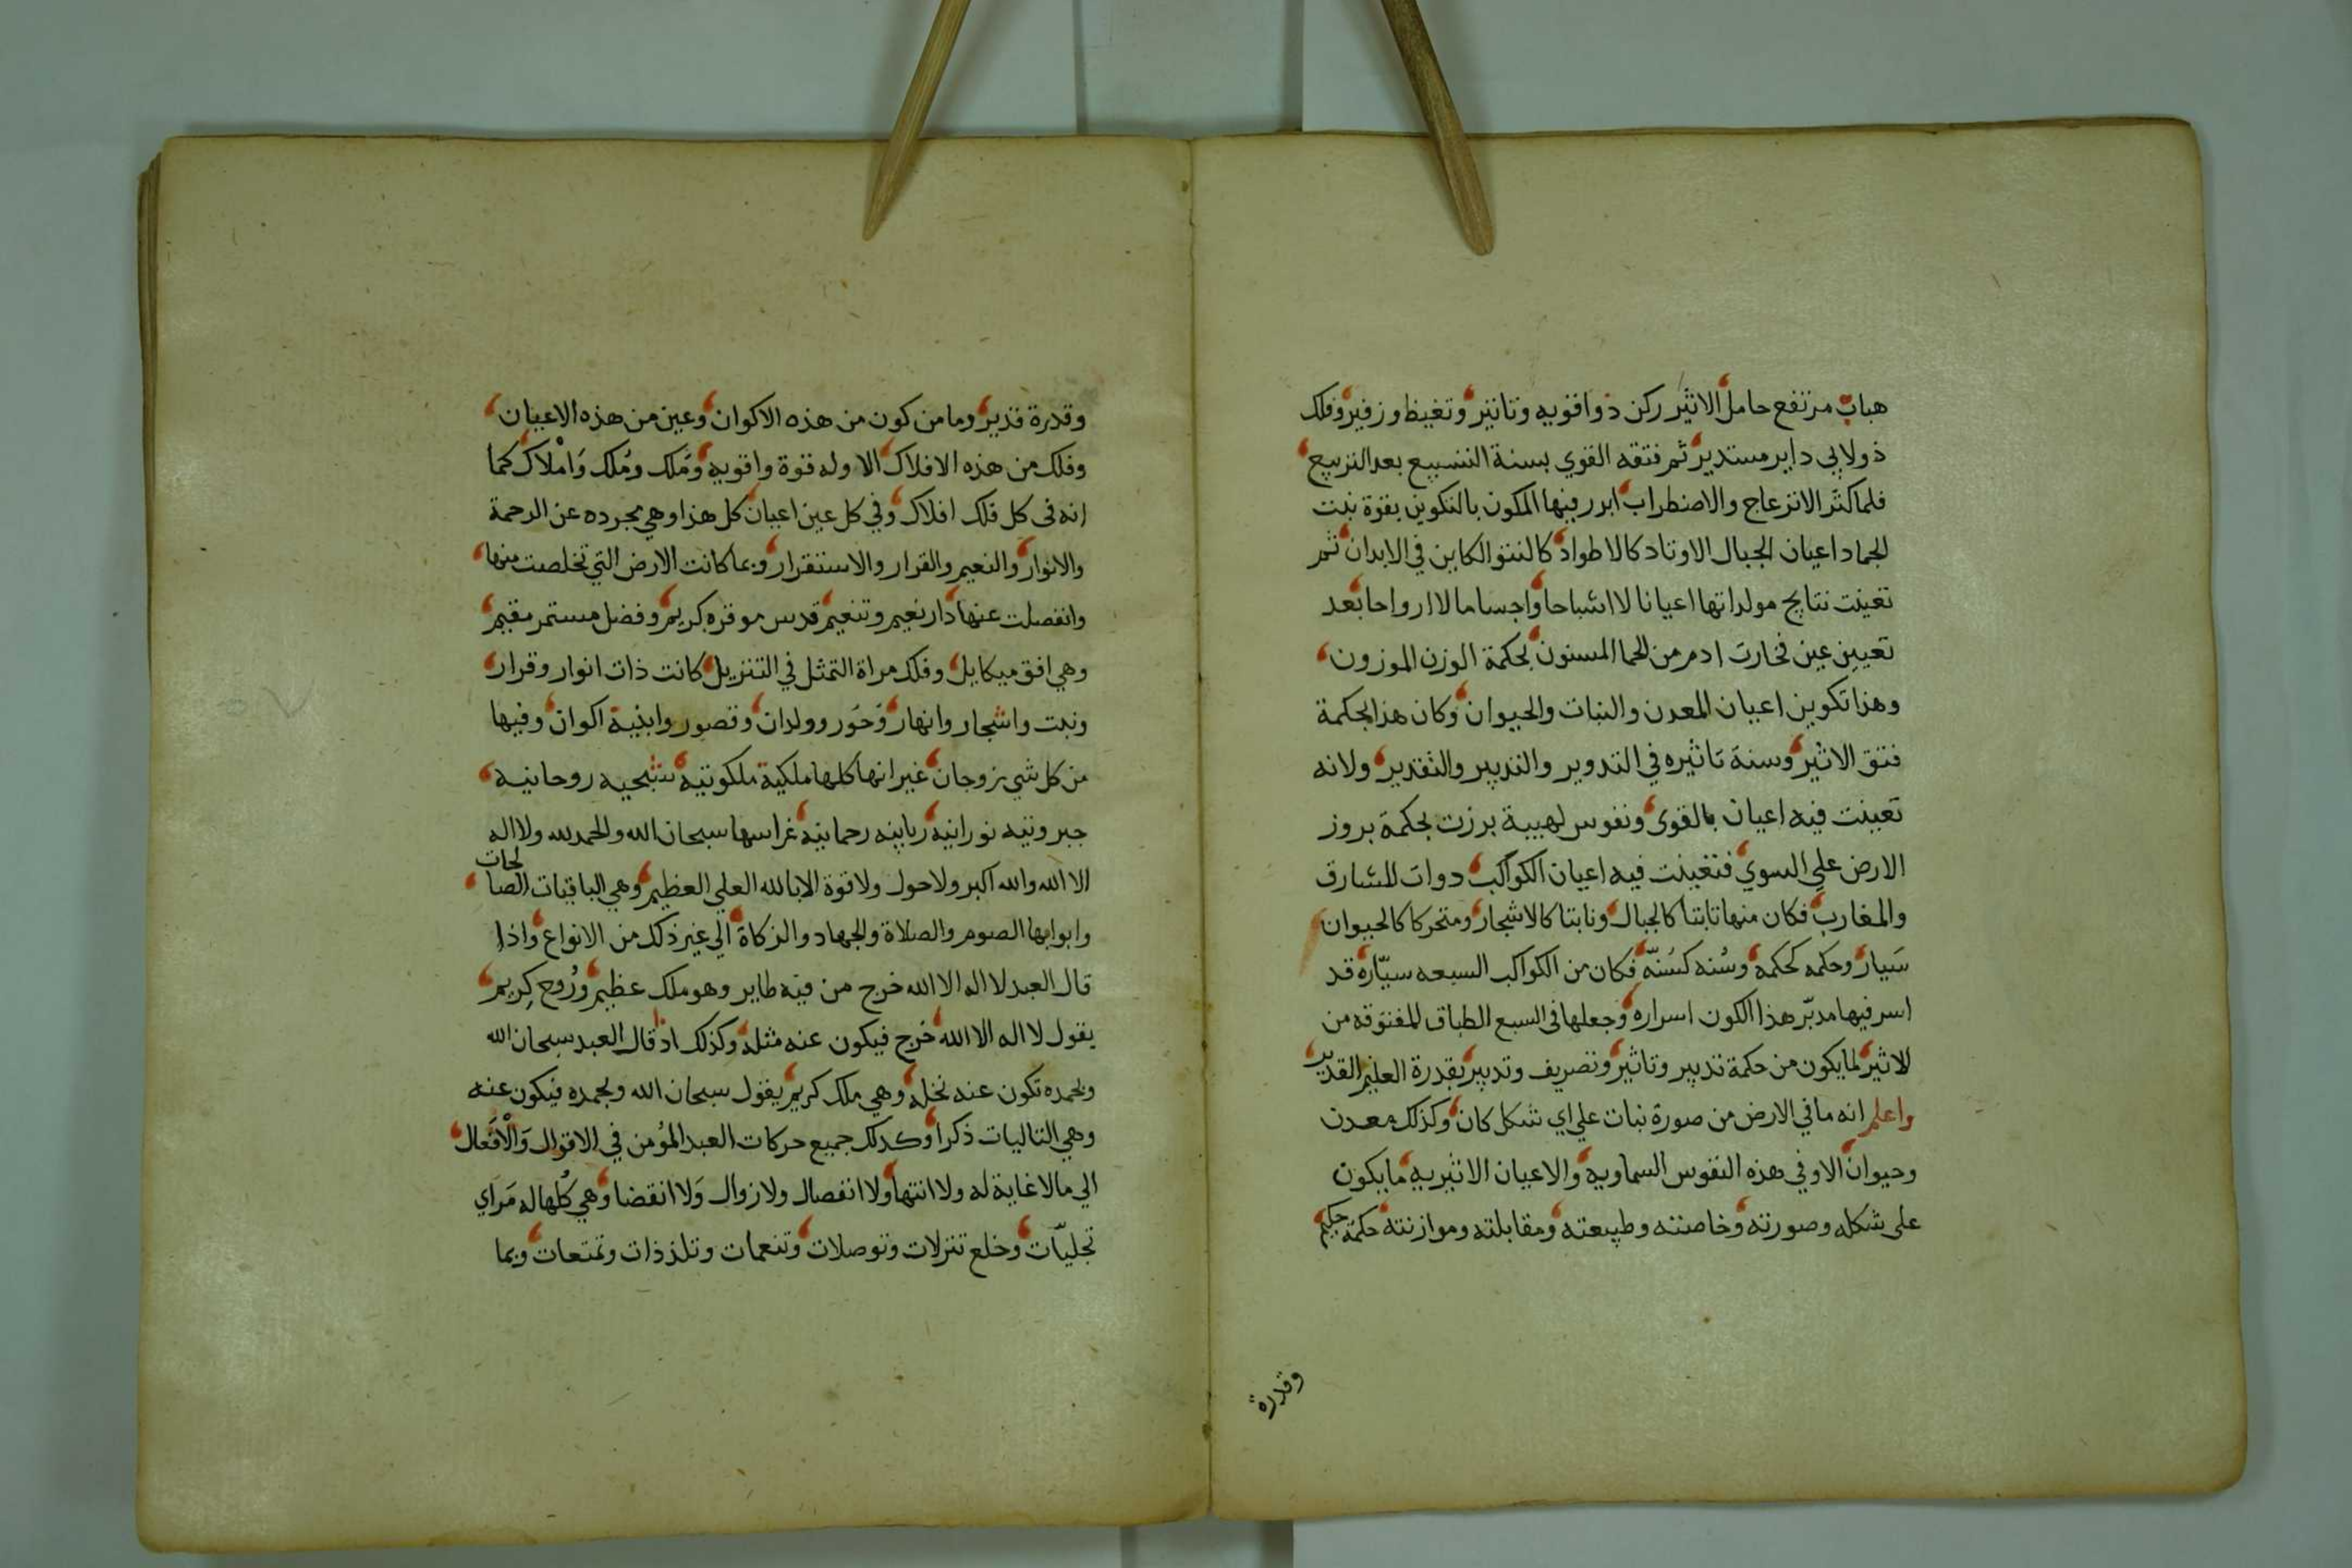 هباب مرتفع حامل الاثير ركن ذو اقويه وتاثير وتغيظ وزفير وفلك
ذولابي داير مستدير ثم فتقه القوي بسنة التسبيع بعد التربيع
فلما كثر الانزعاج والاضطراب ابرر فيها المكون بالتكوين بقرة نبت
الجماد اعيان الجبال الاوتاد كالاطواد كالنتو الكاين في الابدان ثم
تعينت نتايج مولداتها اعيانا لا اشباحا واجساما لا ارواحا بعد
تعيين عين فخارت ادم من الحما المسنون بحكمة الوزن الموزون
وهذا تكوين اعيان المعدن والنبات والحيوان وكان هذا بحكمة
فتق الاثير وسنة تاثيره في التدوير والتدبير والتقدير ولانه
تعينت فيه اعيان بالقوى ونفوس لهيبية برزت بحكمة بروز
الارض على السوي فتعينت فيه اعيان الكواكب دوات المشارق
والمغارب فكان منها ثابتا كالجبال ونابتا كالاشجار ومتحركا كالحيوان
سَيار وحكمه كحكمه وسُنه كسُنّه فكان من الكواكب السبعه سيّاره قد
اسر فيها مدبّر هذا الكون اسراره وجعلها في السبع الطباق المفتوقه من
الاثير لما يكون من حكمة تدبير وتاثير وتصريف وتدبير بقدرة العليم القدير
واعلم انه ما في الارض من صورة نبات على اي شكل كان وكذلك معدن
وحيوان الا وفي هذه النفوس السماويه والاعيان الاثيريه ما يكون
على شكله وصورته وخاصته وطبيعته ومقابلته وموازنته حكمة حكيم
وقدرة
وقدرة قدير وما من كون من هذه الاكوان وعين من هذه الاعيان
وفلك من هذه الافلاك الا وله قوة واقويه ومَلك ومُلك وَامْلاك كما
انه في كل فلك افلاك وفي كل عين اعيان كل هذا وهي مجرده عن الرحمة
والانوار والنعيم والقرار والاستقرار وبما كانت الارض التي تخلصت منها
وانفصلت عنها دار نعيم وتنعيم قدس موقره كريم وفضل مستمر مقيم
وهي افق ميكايل وفلك مراة التمثل في التنزيل كانت ذات انوار وقرار
ونبت واشجار وانهار وَحُور وولدان وقصور وابنية اكوان وفيها
من كل شي زوجان غير انها كلها ملكية ملكوتيه شبحيه روحانيه
جبروتيه نورانيه ربانيه رحمانيه غراسها سبحان الله والحمد لله ولا اله
الا الله والله اكبر ولا حول ولا قوة الا بالله العلي العظيم وهي الباقيات الصالحات
وابوابها الصوم والصلاة والجهاد والزكاة الي غير ذلك من الانواع واذا
قال العبد لا اله الا الله خرج من فيه طاير وهو ملك عظيم ورُوح كريم
يقول لا اله الا الله خرج فيكون عنه مثله وكذلك اذا قال العبد سبحان الله
وبحمده تكون عنه نخله وهي ملك كريم يقول سبحان الله وبحمده فيكون عنه
وهي التاليات ذكرا وكدلك جميع حركات العبد المؤمن في الاقوال وَالْافعال
الي ما لا غاية له ولا انتها ولا انفصال ولا زوال وَلا انقضا وهي كُلها له مَراي
تجليّات وخلع تنزلات وتوصلات وتنعمات وتلذذات وتمتعات وبما